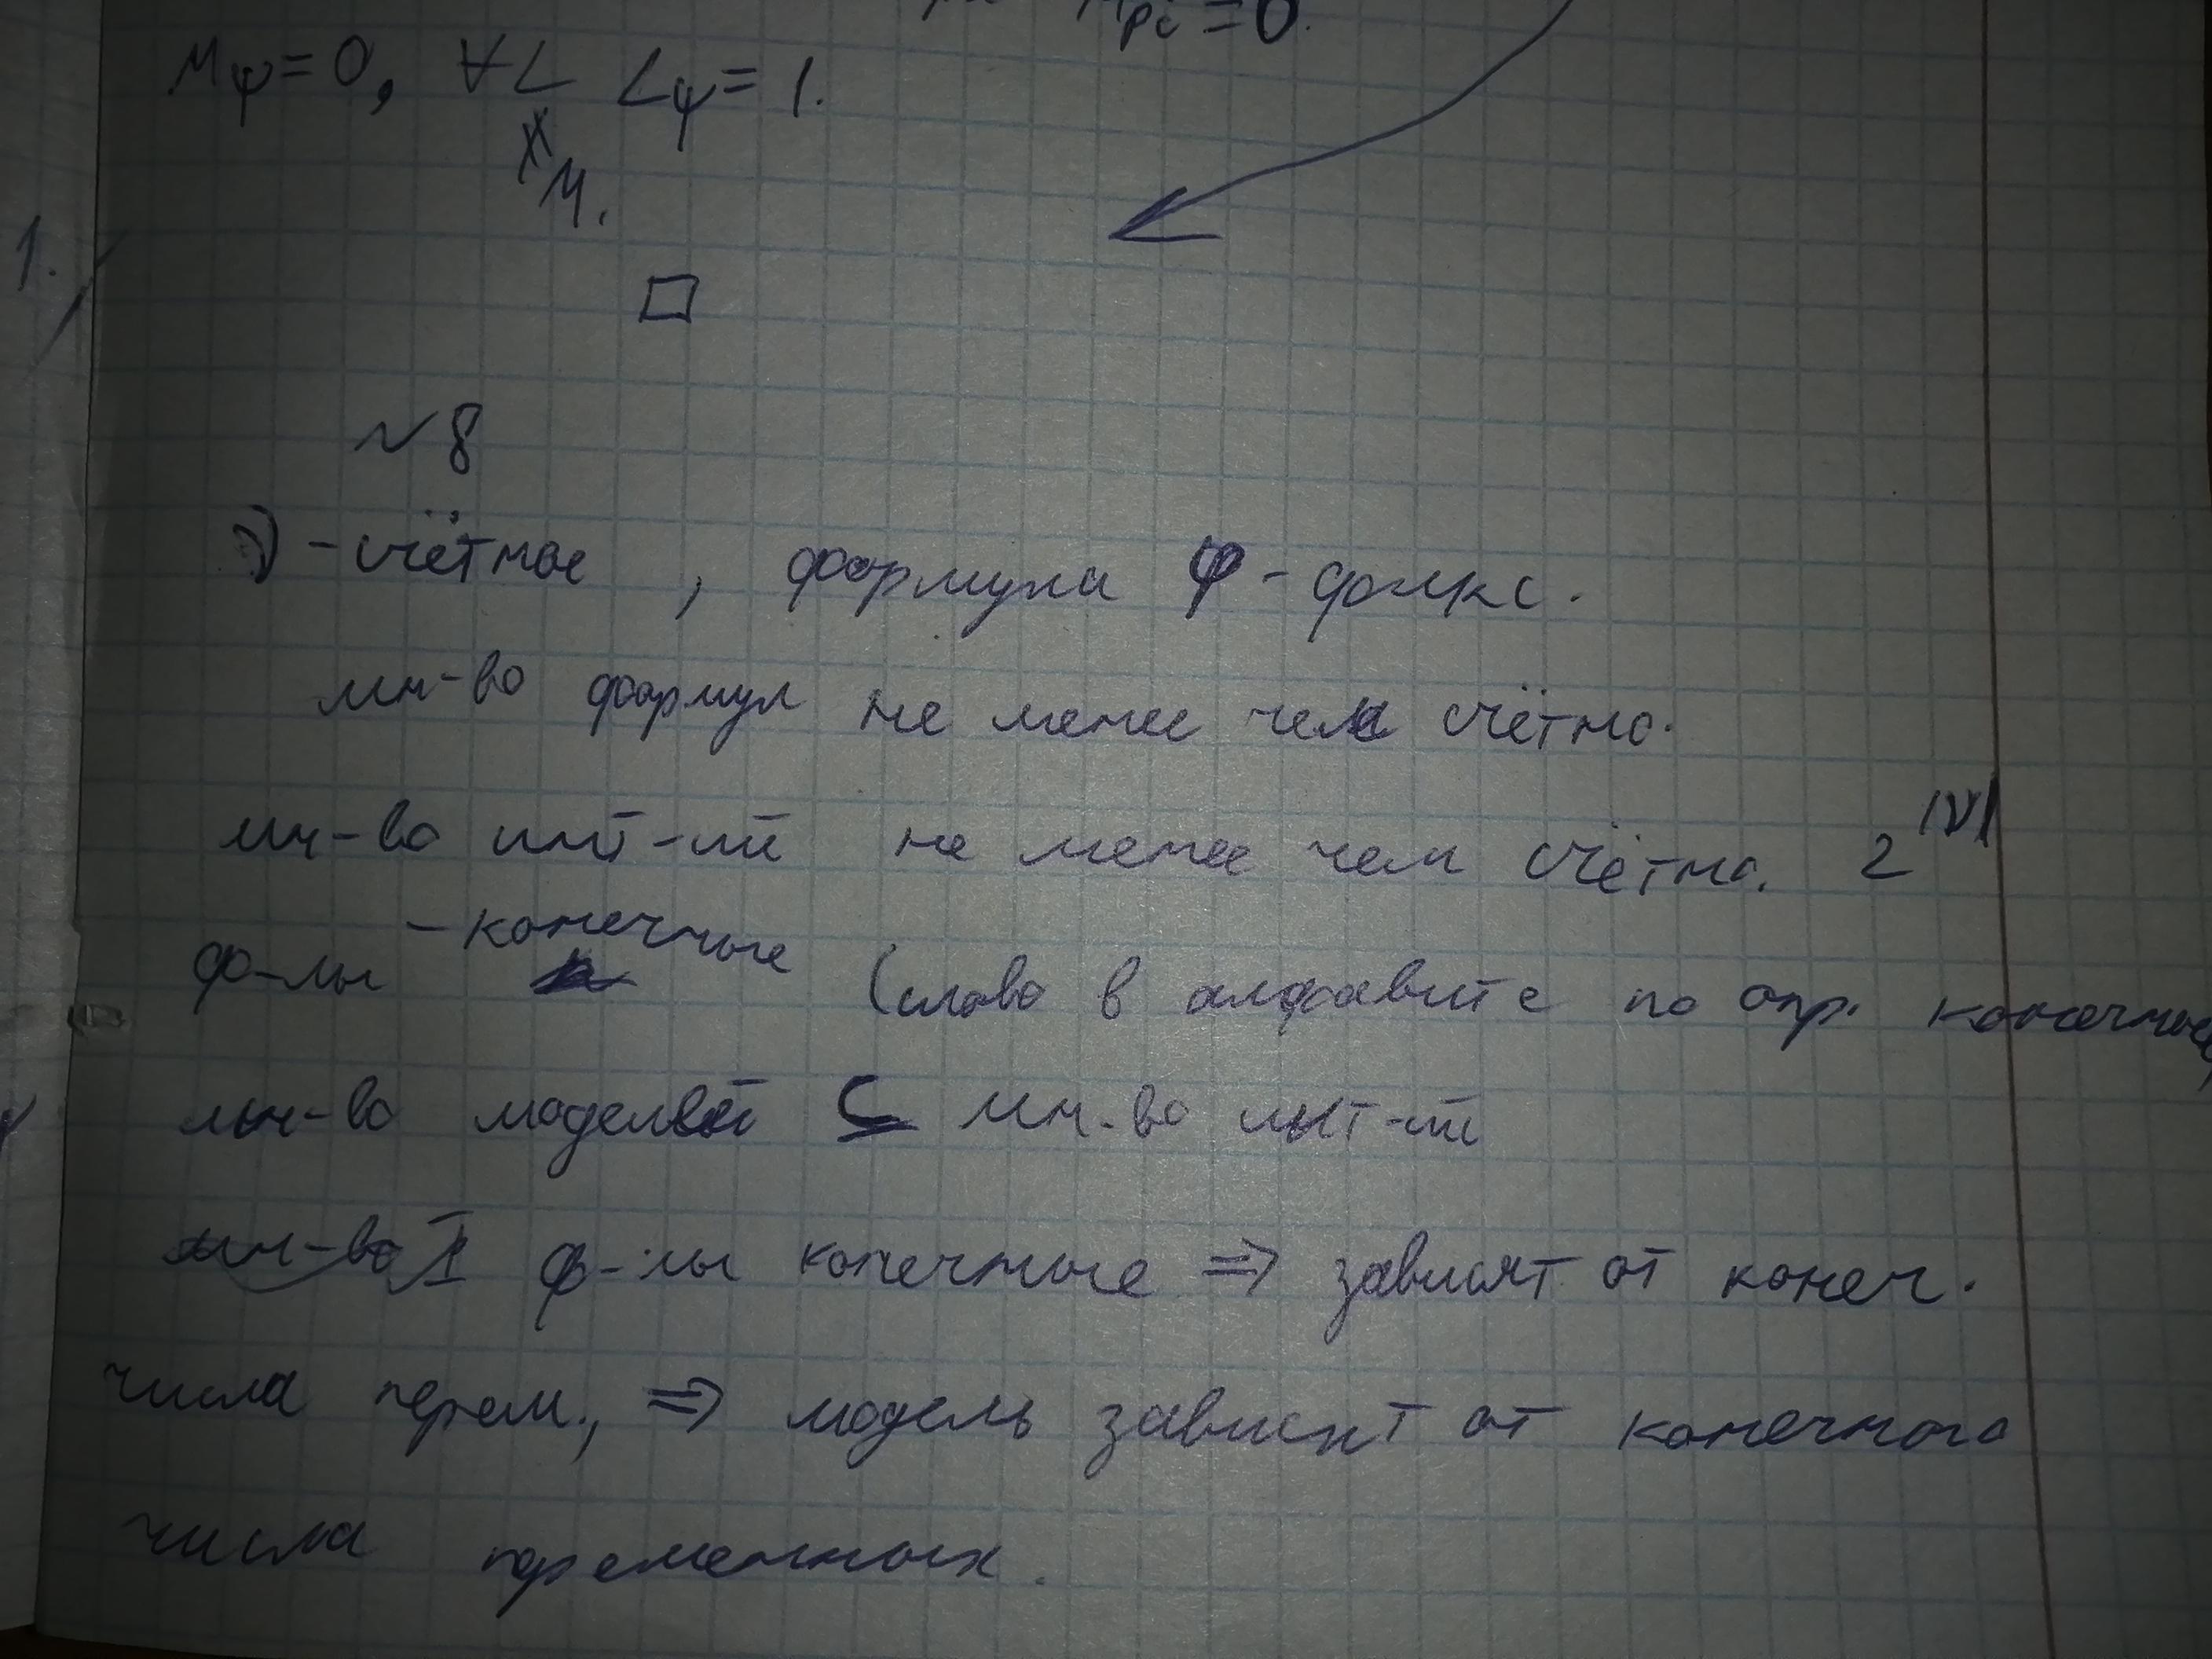 pi = 0.
Mψ = 0, ∀L Lψ = 1.
M.
1.
□
№8
V - счётное, формула φ - фикс.
мн-во формул не менее чем счётно.
мн-во инт-ий не менее чем счётно. 2^|V|
ф-лы - конечные (слово в алфавите по опр. конечное)
мн-во моделей ⊆ мн-во инт-ий
ф-лы конечные ⇒ зависят от конеч.
числа перем., ⇒ модель зависит от конечного
числа переменных.